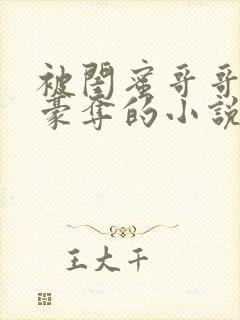 被閨蜜哥哥
豪奪的小說
王大干